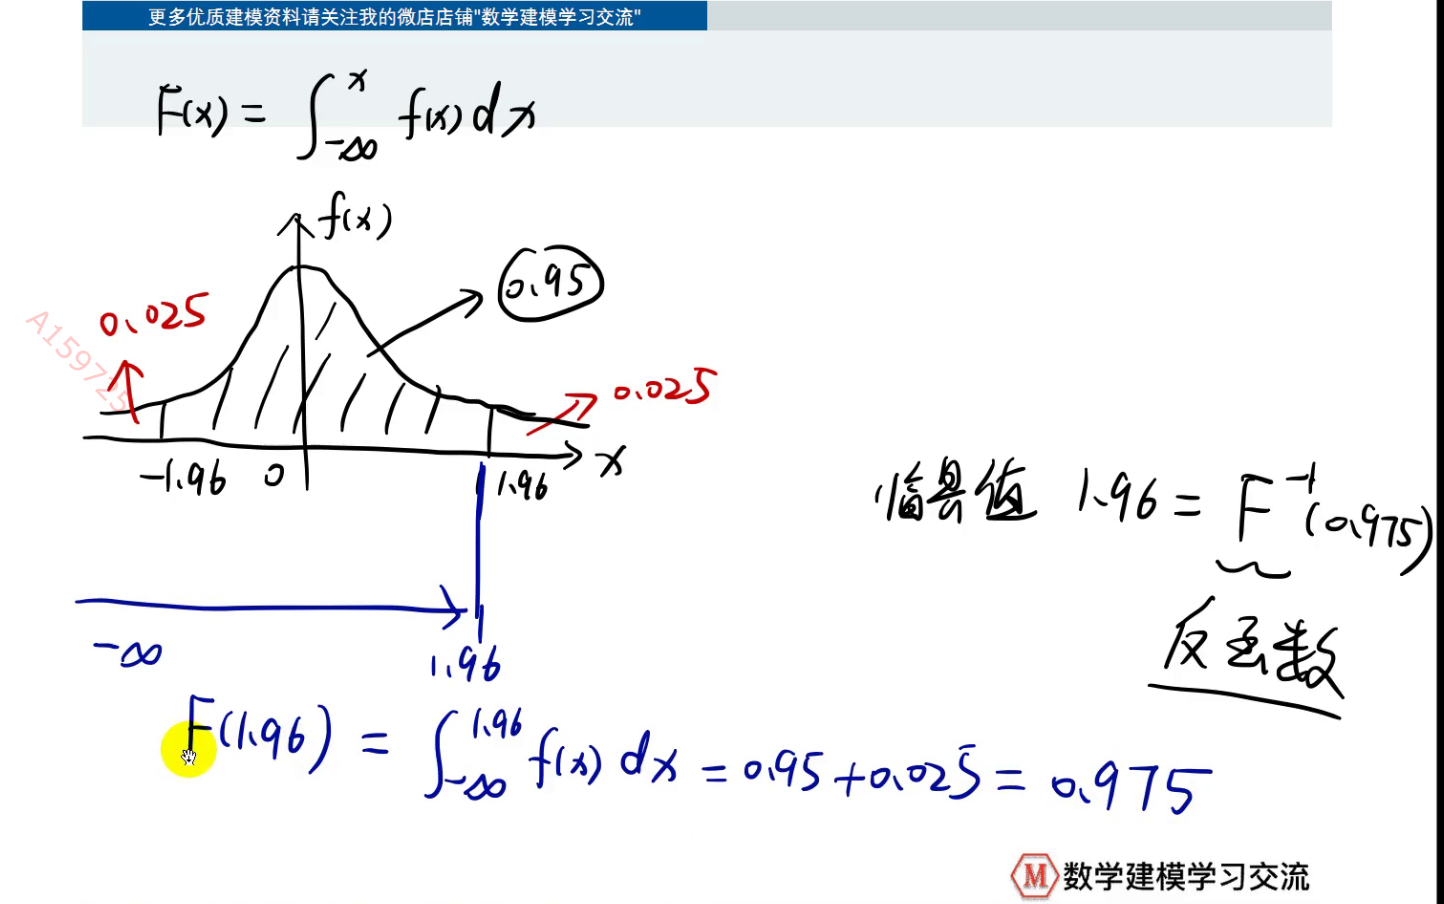 更多优质建模资料请关注我的微店店铺"数学建模学习交流"
F(x) = ∫_{-∞}^{x} f(x) dx
f(x)
0.95
0.025
A159725
0.025
-1.96 0 1.96 x
临界值 1.96 = F^{-1}(0.975)
反函数
-∞ 1.96
F(1.96) = ∫_{-∞}^{1.96} f(x) dx = 0.95+0.025 = 0.975
M 数学建模学习交流